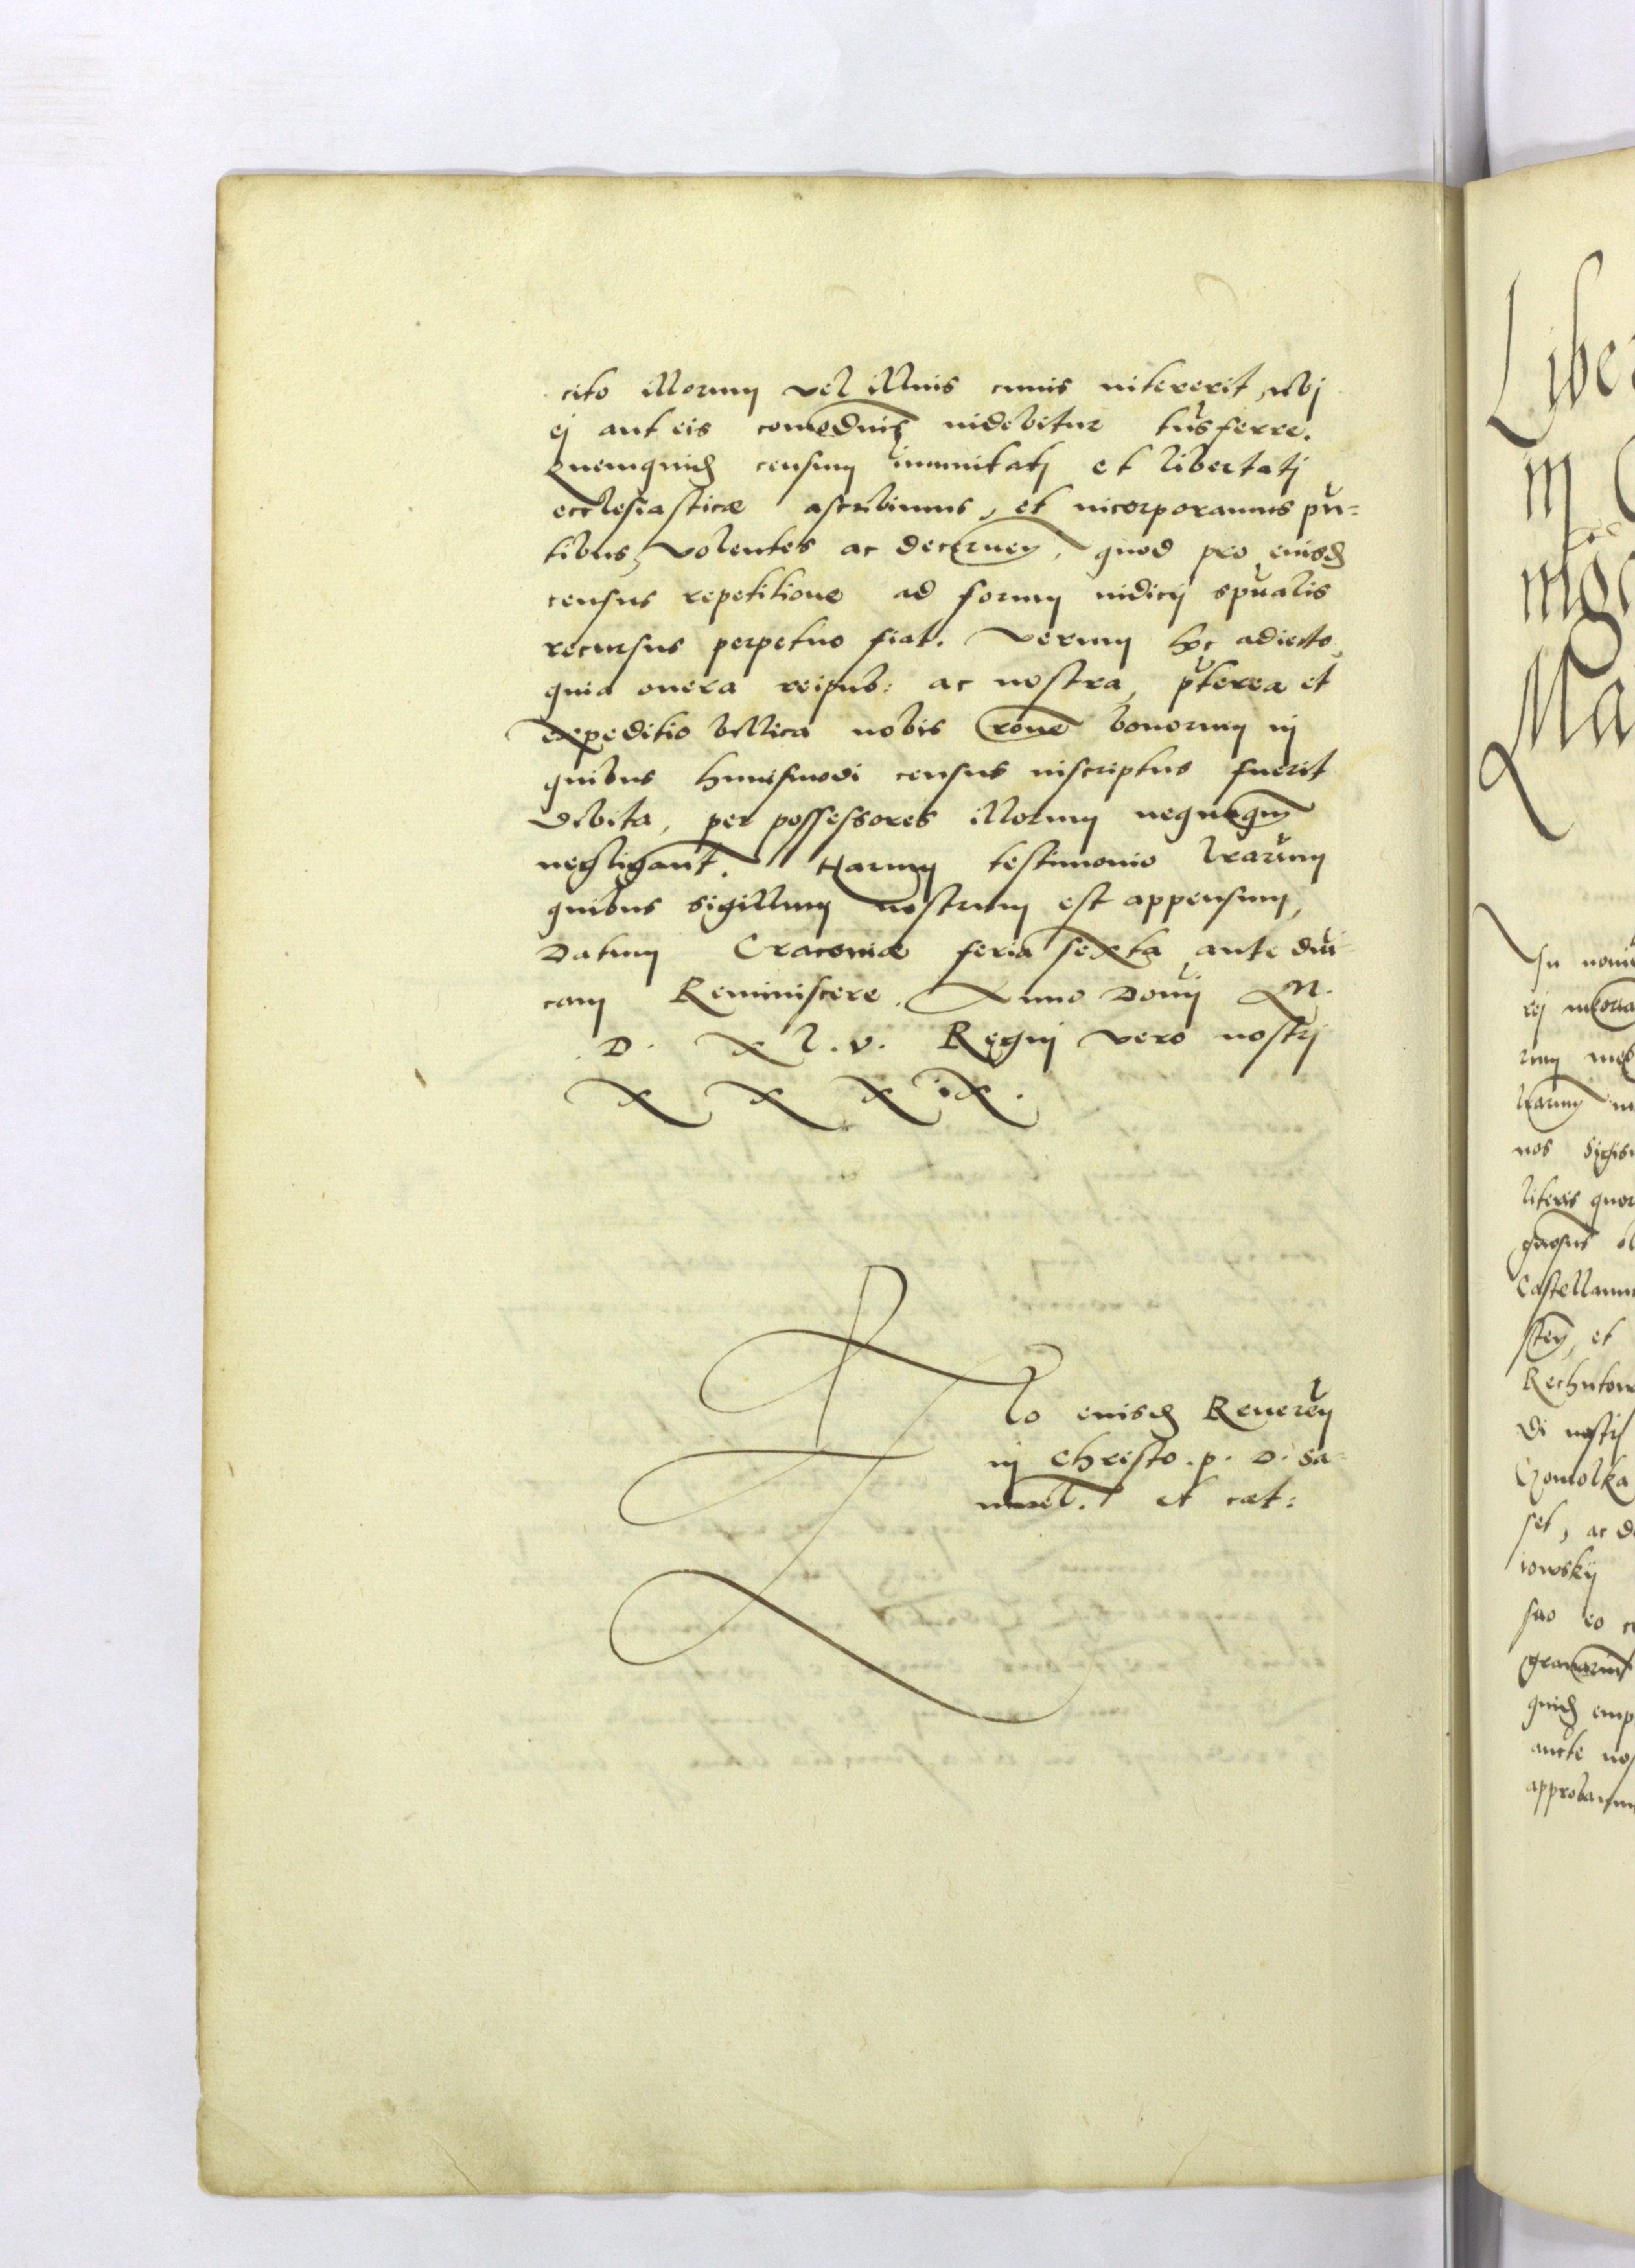 cito illorum vel illius cuius intererit, ubi
ei aut eis comodius videbitur trãsferre.
Quemquidẽ censum imunitati et libertati
ecclesiasticæ ascribimus, et incorporamus pñ-
tibus, volentes ac decernẽ, quod pro eiusdẽ
census repetitione ad forum iudicij spũalis
recursus perpetuo fiat. Verum hoc adiecto,
quia onera reipub: ac nostra, p̃terea et
expeditio bellica nobis rõne bonorum in
quibus huiusmodi census inscriptus fuerit
debita, per possessores illorum nequaquã
negligant̃. Harum testimonio l̃rarum
quibus sigillum nostrum est appensum,
Datum Cracoviæ feria sexta ante dñi-
cam Reminiscere. Anno Domi M.
D. X L. V. Regni vero nostri
X X X iX.
R̃lo eiusdẽ Reverẽn
in Christo. p. D. Sa-
muel. et cæt:
Liber
in
Ma
In nomi
rum
l̃rarum
nos Sigis
literis quor
Castellanu
et
Rechutow
di nostri
Gomolka
set, ac d
iowskij
suo eo
quidẽ emp
approbamu